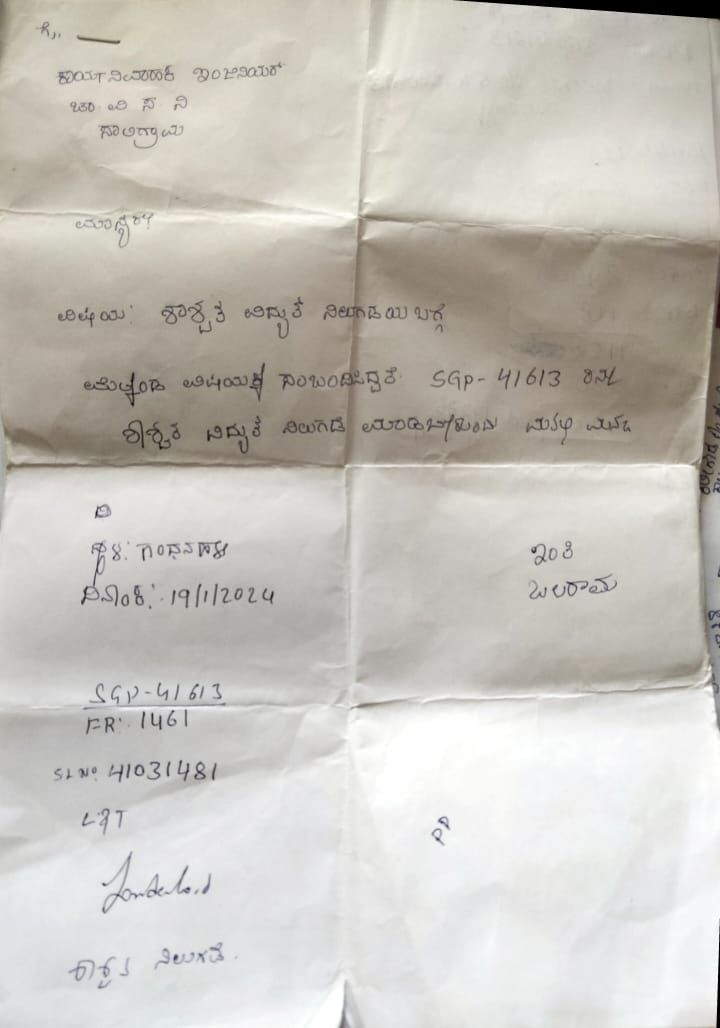 ಗೆ,,
ಕಾರ್ಯನಿರ್ವಾಹಕ ಇಂಜಿನಿಯರ್
ಚಾ ವಿ ಸ ನಿ
ಸಾಲಿಗ್ರಾಮ
ಮಾನ್ಯರೇ
ವಿಷಯ: ಶಾಶ್ವತ ವಿದ್ಯುತ್ ನಿಲುಗಡೆಯ ಬಗ್ಗೆ
ಮೇಲ್ಕಂಡ ವಿಷಯಕ್ಕೆ ಸಂಬಂದಿಸಿದ್ದಂತೆ SGP-41613
ಶಾಶ್ವತ ವಿದ್ಯುತ್ ನಿಲುಗಡೆ ಮಾಡಬೇಕೆಂದು ಮನವಿ
ಸ್ಥಳ: ಗಂಧನಹಳ್ಳಿ
ದಿನಾಂಕ: 19/1/2024
ಇಂತಿ
ಬಲರಾಮ
SGP-41613
FR: 1461
SL No: 41031481
L&T
ಶಾಶ್ವತ ನಿಲುಗಡೆ.